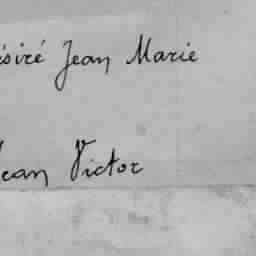 ésiré Jean Marie
Jean Victor